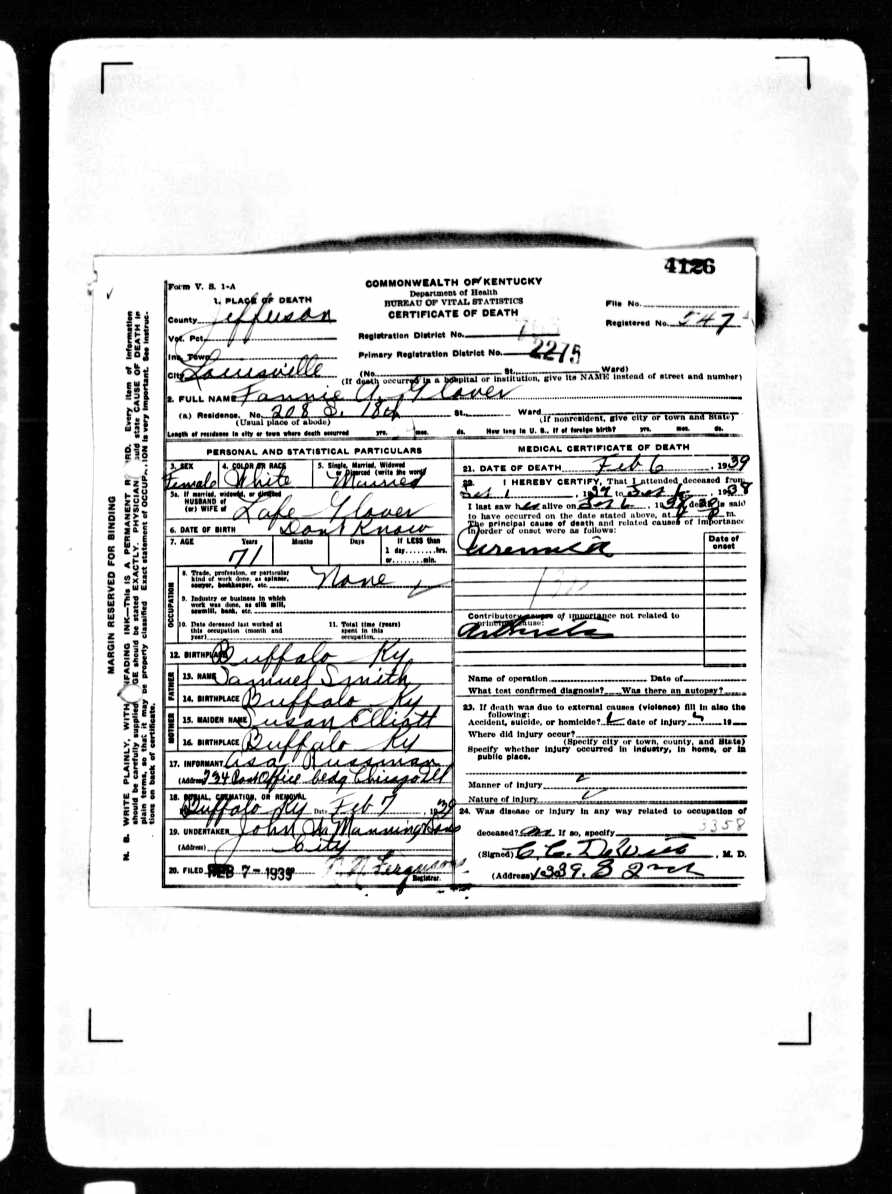 4126
Form V. S. 1-A
COMMONWEALTH OF KENTUCKY
Department of Health
BUREAU OF VITAL STATISTICS
CERTIFICATE OF DEATH
1. PLACE OF DEATH
County Jefferson
File No.
Registered No. 547
Vot. Pct.
Registration District No.
Inc. Town
Primary Registration District No. 2275
City Louisville
(No. St. Ward)
(If death occurred in a hospital or institution, give its NAME instead of street and number)
2. FULL NAME Fannie A. Glover
(a) Residence. No. 208 S. 18th St., Ward
(Usual place of abode)
(If nonresident, give city or town and State)
Length of residence in city or town where death occurred yrs. mos. ds. How long in U. S., if of foreign birth? yrs. mos. ds.
PERSONAL AND STATISTICAL PARTICULARS
3. SEX
Female
4. COLOR OR RACE
White
5. Single, Married, Widowed or Divorced (write the word)
Married
5a. If married, widowed, or divorced
HUSBAND of
(or) WIFE of Lafe Glover
6. DATE OF BIRTH Dont Know
7. AGE Years Months Days If LESS than
1 day........hrs.
or........min.
71
OCCUPATION
8. Trade, profession, or particular kind of work done, as spinner, sawyer, bookkeeper, etc. None
9. Industry or business in which work was done, as silk mill, sawmill, bank, etc.
10. Date deceased last worked at this occupation (month and year)
11. Total time (years) spent in this occupation
12. BIRTHPLACE Buffalo Ky
FATHER
13. NAME Samuel Smith
14. BIRTHPLACE Buffalo Ky
MOTHER
15. MAIDEN NAME Susan Elliott
16. BIRTHPLACE Buffalo Ky
17. INFORMANT Asa Russman
(Address) 734 Post Office bldg Chicago Ill
18. BURIAL, CREMATION, OR REMOVAL
Buffalo Ky Date Feb 7, 1939
19. UNDERTAKER John W Manning Sons
(Address) City
20. FILED FEB 7 - 1939
Registrar.
MEDICAL CERTIFICATE OF DEATH
21. DATE OF DEATH Feb 6, 1939
22. I HEREBY CERTIFY, That I attended deceased from
I last saw her alive on death is said
to have occurred on the date stated above, at m.
The principal cause of death and related causes of importance
in order of onset were as follows:
Uremia
Date of onset
Contributory causes of importance not related to
principal cause:
Name of operation Date of
What test confirmed diagnosis? Was there an autopsy?
23. If death was due to external causes (violence) fill in also the
following:
Accident, suicide, or homicide? date of injury 19
Where did injury occur?
(Specify city or town, county, and State)
Specify whether injury occurred in industry, in home, or in
public place.
Manner of injury
Nature of injury
24. Was disease or injury in any way related to occupation of
3358
deceased? If so, specify
(Signed) C. C. DeWitt, M. D.
(Address) 1339 S 2nd
MARGIN RESERVED FOR BINDING